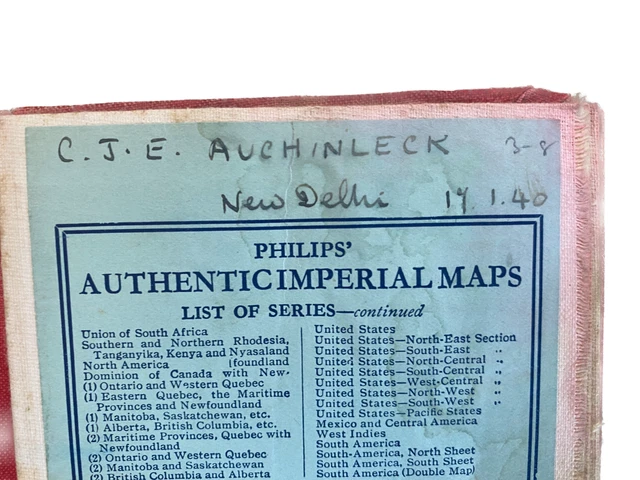 C. J. E. AUCHINLECK 3-8
New Delhi 17.1.40
PHILIPS'
AUTHENTIC IMPERIAL MAPS
LIST OF SERIES—continued
Union of South Africa
Southern and Northern Rhodesia,
Tanganyika, Kenya and Nyasaland
North America [foundland
Dominion of Canada with New-
(1) Ontario and Western Quebec
(1) Eastern Quebec, the Maritime
Provinces and Newfoundland
(1) Manitoba, Saskatchewan, etc.
(1) Alberta, British Columbia, etc.
(2) Maritime Provinces, Quebec with
Newfoundland
(2) Ontario and Western Quebec
(2) Manitoba and Saskatchewan
(2) British Columbia and Alberta
United States
United States—North-East Section
United States—South-East ,,
United States—North-Central ,,
United States—South-Central ,,
United States—West-Central ,,
United States—North-West ,,
United States—South-West ,,
United States—Pacific States
Mexico and Central America
West Indies
South America
South-America, North Sheet
South America, South Sheet
South America (Double Map)